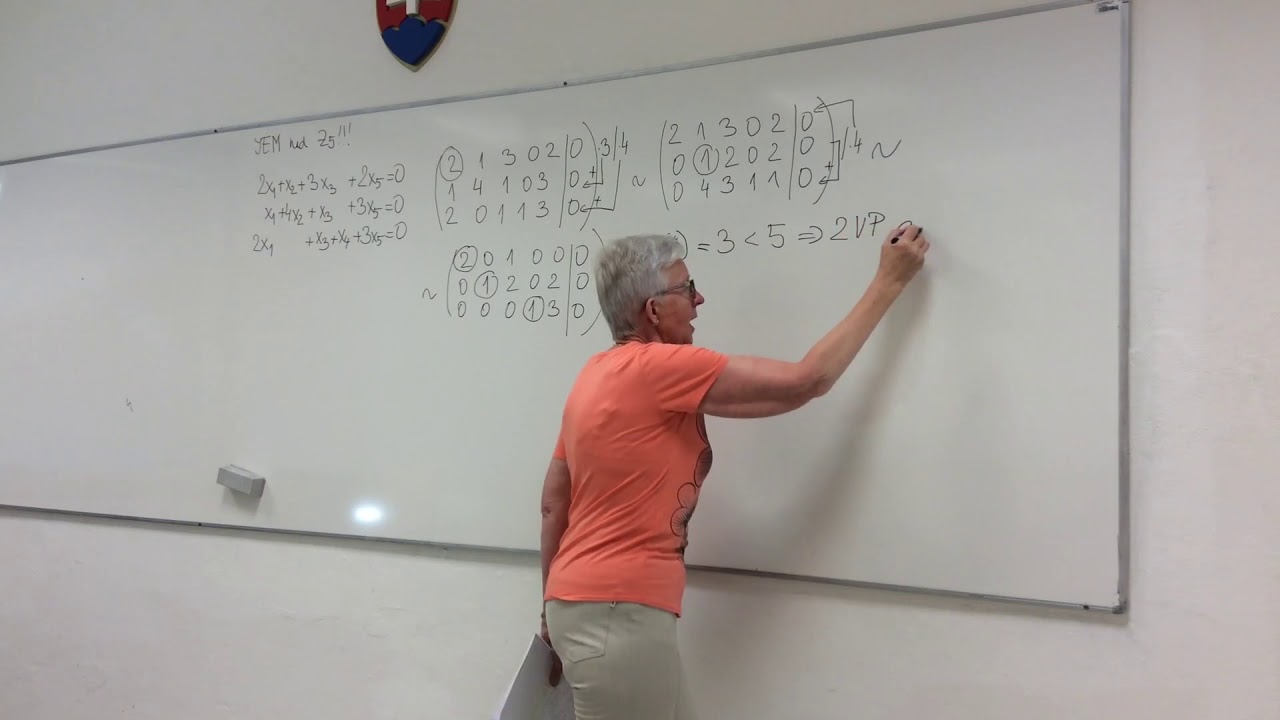 SEM nad Z5!!!
2x₁+x₂+3x₃ +2x₅=0
x₁+4x₂+x₃ +3x₅=0
2x₁ +x₃+x₄+3x₅=0
2 1 3 0 2 | 0 .3/4
1 4 1 0 3 | 0 +
2 0 1 1 3 | 0 +
~
2 1 3 0 2 | 0
0 1 2 0 2 | 0 /.4 ~
0 4 3 1 1 | 0 +
~
2 0 1 0 0 | 0
0 1 2 0 2 | 0
0 0 0 1 3 | 0
) = 3 < 5 ⇒ 2VP